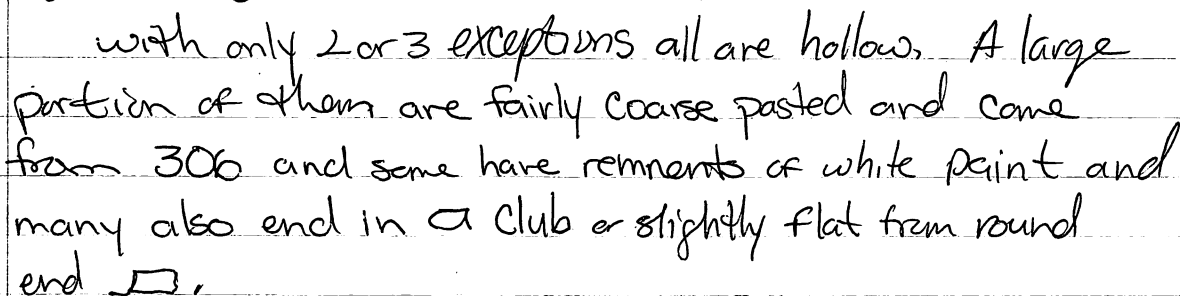 with only 2 or 3 exceptions all are hollow. A large
portion of them are fairly coarse pasted and come
from 306 and some have remnents of white paint and
many also end in a club or slightly flat from round
end